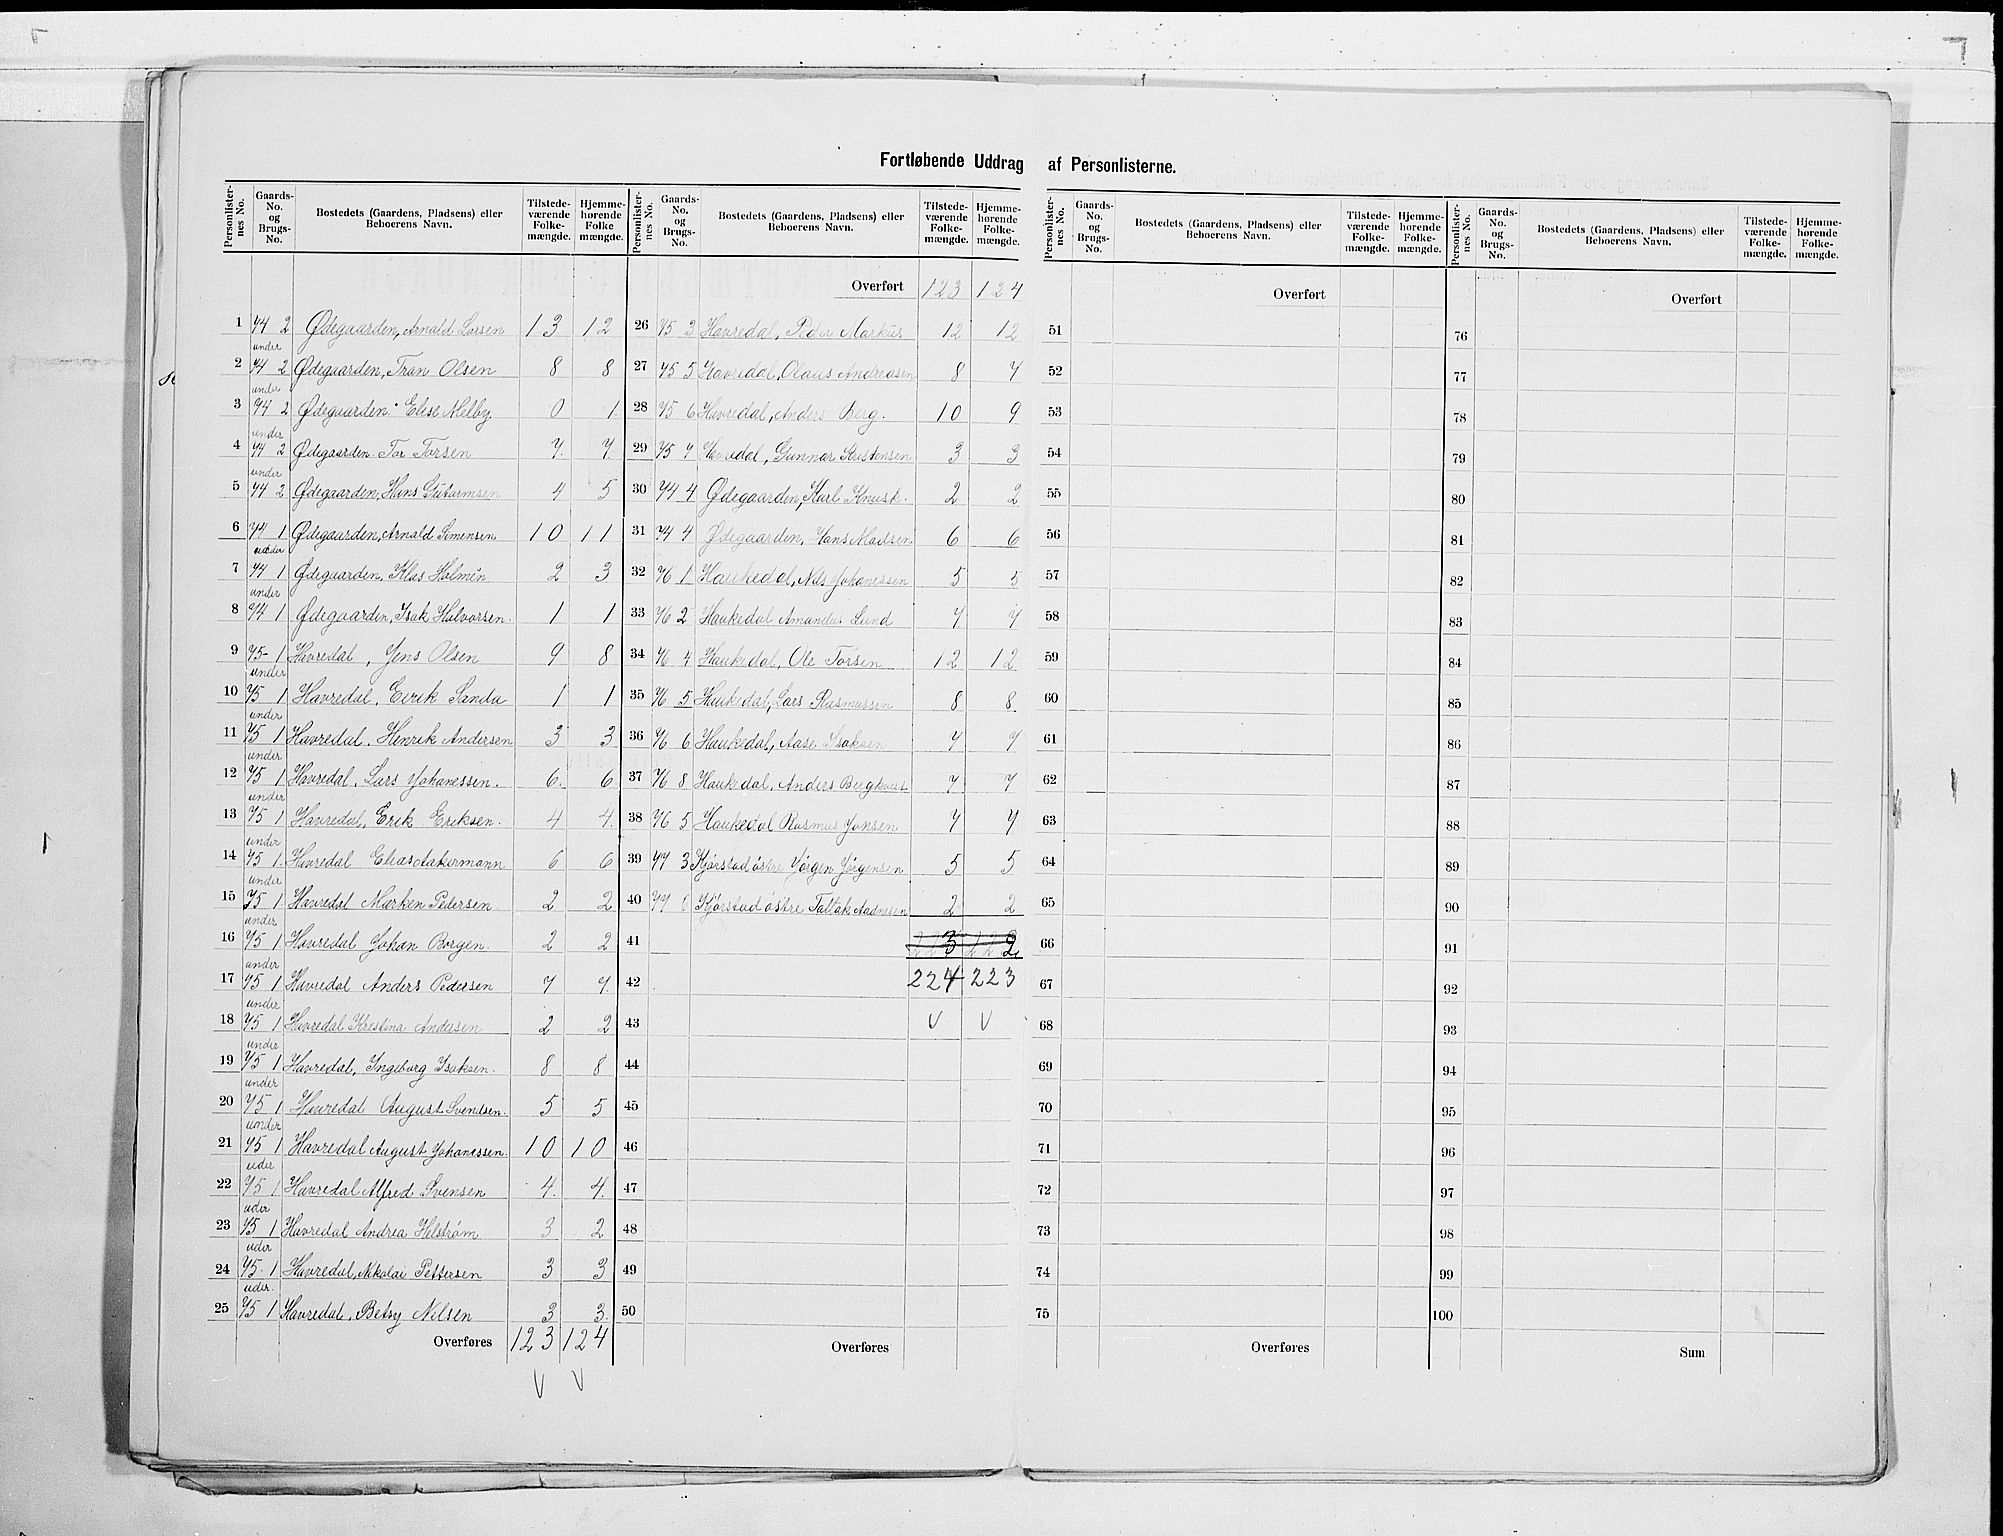 Fortløbende Uddrag af Personlisterne.
Personlister-nes No. Gaards-No. og Brugs-No. Bostedets (Gaardens, Pladsens) eller Beboerens Navn. Tilstede-værende Folke-mængde. Hjemme-hørende Folke mængde.
1 74 2 Ødegaarden, Arnald Larsen 13 12
under
2 74 2 Ødegaarden, Tran Olsen 8 8
under
3 74 2 Ødegaarden. Elise Melby 0 1
under
4 74 2 Ødegaarden. Tor Torsen 7. 7.
under
5 74 2 Ødegaarden, Hans Gutormsen 4 5
6 74 1 Ødegaarden, Arnald Simensen 10 11
under
7 74 1 Ødegaarden, Klas Holmin 2 3
under
8 74 1 Ødegaarden, Isak Halvorsen. 1 1
9 75-1 Havredal, Jens Olsen 9 8
under
10 75 1 Havredal, Eirik Sanda 1 1
under
11 75 1 Havredal. Henrik Andersen 3 3
under
12 75 1 Havredal, Lars Johanessen. 6. 6
under
13 75 1 Havredal, Erik Eriksen. 4 4.
under
14 75 1. Havredal Elias Aakermann 6 6
under
15 75 1. Havredal Marken Pedersen 2 2
under
16 75 1. Havredal Johan Borgen. 2 2
under
17 75 1 Havredal Anders Pedersen 7 7.
under
18 75 1 Havredal Kristina Andersen 2 2
under
19 75 1 Havredal, Ingeborg Isaksen. 8 8
under
20 75 1 Havredal August Svendsen. 5 5
under
21 75 1 Havredal August Johanessen. 10 10
uder
22 75 1 Havredal Alfred Svensen 4. 4.
uder
23 75 1 Havredal Andrea Helstrøm 3 2
uder
24 75-1 Havredal, Nikolai Pettersen 3 3
uder.
25 75 1 Havredal, Betsy Nilsen 3 3.
Overføres 123 124
V V
Personlister-nes No. Gaards-No. og Brugs-No. Bostedets (Gaardens, Pladsens) eller Beboerens Navn. Tilstede-værende Folke-mængde. Hjemme-hørende Folke-mængde.
Overført 123 124
26 75 3 Havredal, Peder Markus 12 12
27 75 5 Havredal, Olaus Andreasen 8 7
28 75 6 Havredal, Anders Berg. 10 9
29 75 7 Havredal, Gunnar Kristensen 3 3
30 74 4 Ødegaarden, Karl 2 2
31 74 4 Ødegaarden, Hans Madsen 6 6
32 76 1 Haukedal, Nils Johanessen 5 5
33 76 2 Haukedal Amandus Lund 7 7
34 76 4 Haukedal, Ole Torsen 12 12
35 76 5 Haukedal, Lars Rasmussen 8 8.
36 76 6 Haukedal, Aase Isaksen 7 7
37 76 8 Haukedal, Anders Bergkvist 7 7
38 76 5 Haukedal Rasmus Jonsen 7 7
39 77 3 Kjørstad østre Jørgen Jørgensen 5 5
40 77 Kjørstad østre Taltak Aadnesen 2 2
41 223 222
42 224 223
43 V V
44
45
46
47
48
49
50
Overføres
Personlister-nes No. Gaards-No. og Brugs-No. Bostedets (Gaardens, Pladsens) eller Beboerens Navn. Tilstede-værende Folke-mængde. Hjemme-hørende Folke-mængde.
Overført
51
52
53
54
55
56
57
58
59
60
61
62
63
64
65
66
67
68
69
70
71
72
73
74
75
Overføres
Personlister-nes No. Gaards-No. og Brugs-No. Bostedets (Gaardens, Pladsens) eller Beboerens Navn. Tilstede-værende Folke-mængde. Hjemme-hørende Folke-mængde.
Overført
76
77
78
79
80
81
82
83
84
85
86
87
88
89
90
91
92
93
94
95
96
97
98
99
100
Sum